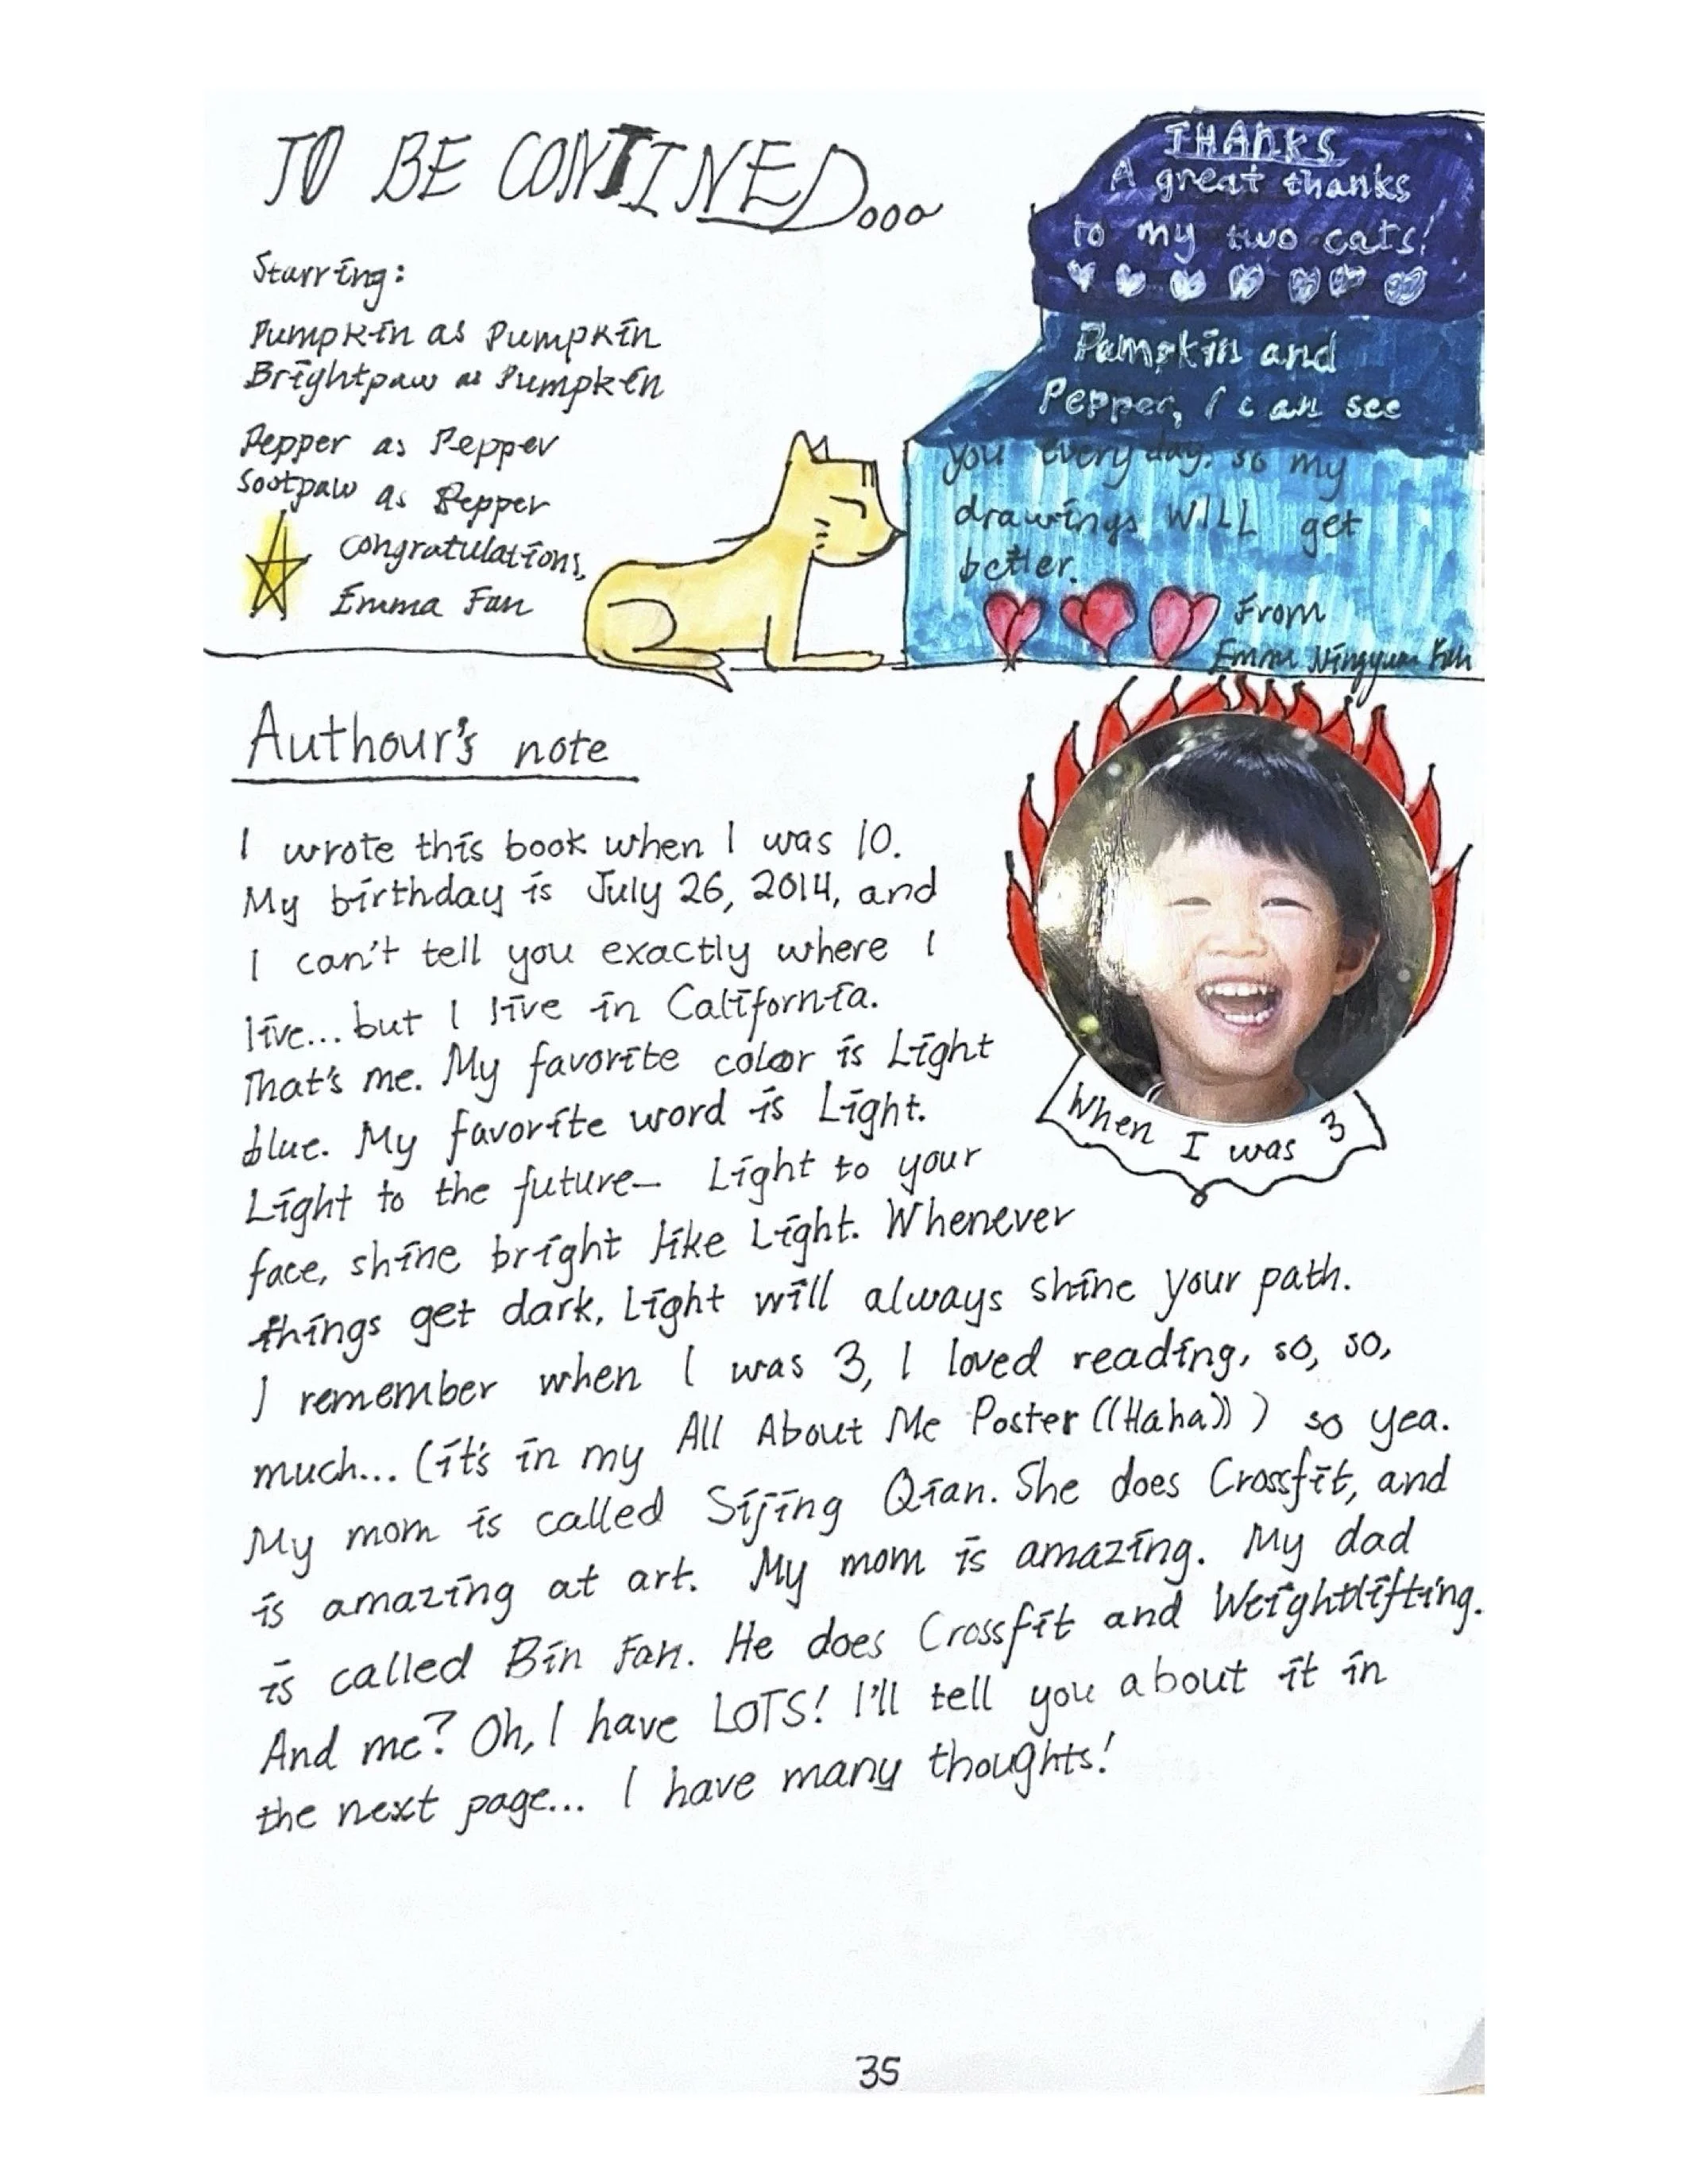 TO BE CONTINED...
Starring:
Pumpkin as Pumpkin
Brightpaw as Pumpkin
Pepper as Pepper
Sootpaw as Pepper
Congratulations,
Emma Fan
THANKS
A great thanks
to my two cats!
Pumpkin and
Pepper, I can see
you every day. so my
drawings WILL get
better.
From
Emma Ningyuan Fan
Authour's note
I wrote this book when I was 10.
My birthday is July 26, 2014, and
I can't tell you exactly where I
live... but I live in California.
That's me. My favorite color is Light
blue. My favorite word is Light.
Light to the future— Light to your
face, shine bright like Light. Whenever
things get dark, Light will always shine your path.
I remember when I was 3, I loved reading, so, so,
much... (it's in my All About Me Poster ((Haha)) ) so yea.
My mom is called Sijing Qian. She does Crossfit, and
is amazing at art. My mom is amazing. My dad
is called Bin Fan. He does Crossfit and Weightlifting.
And me? Oh, I have LOTS! I'll tell you about it in
the next page... I have many thoughts!
When I was 3
35